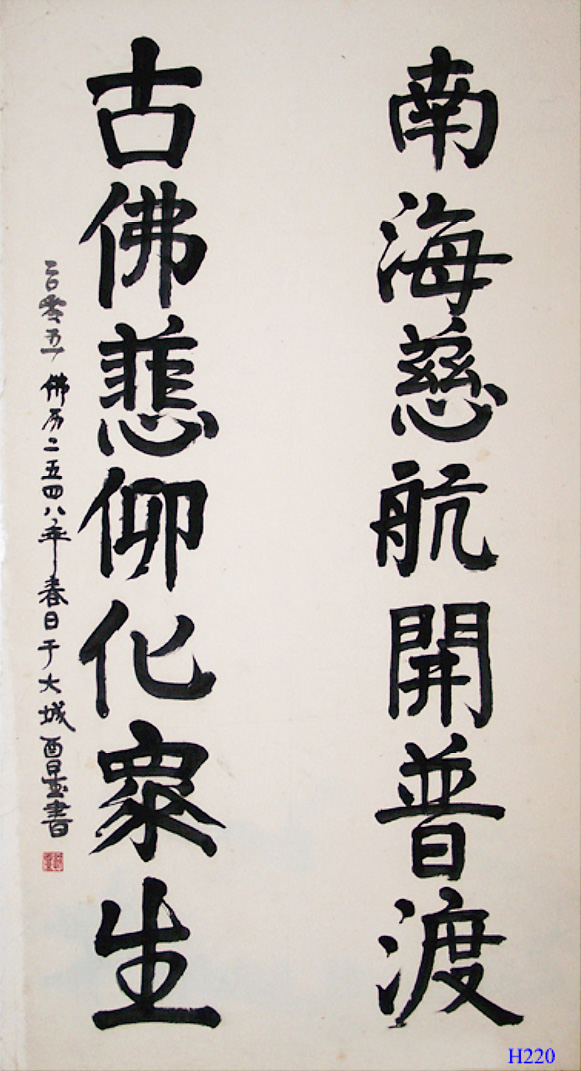 南海慈航開普渡
古佛悲仰化衆生
二〇零五 佛历二五四八年春日于大城 酉書
H220